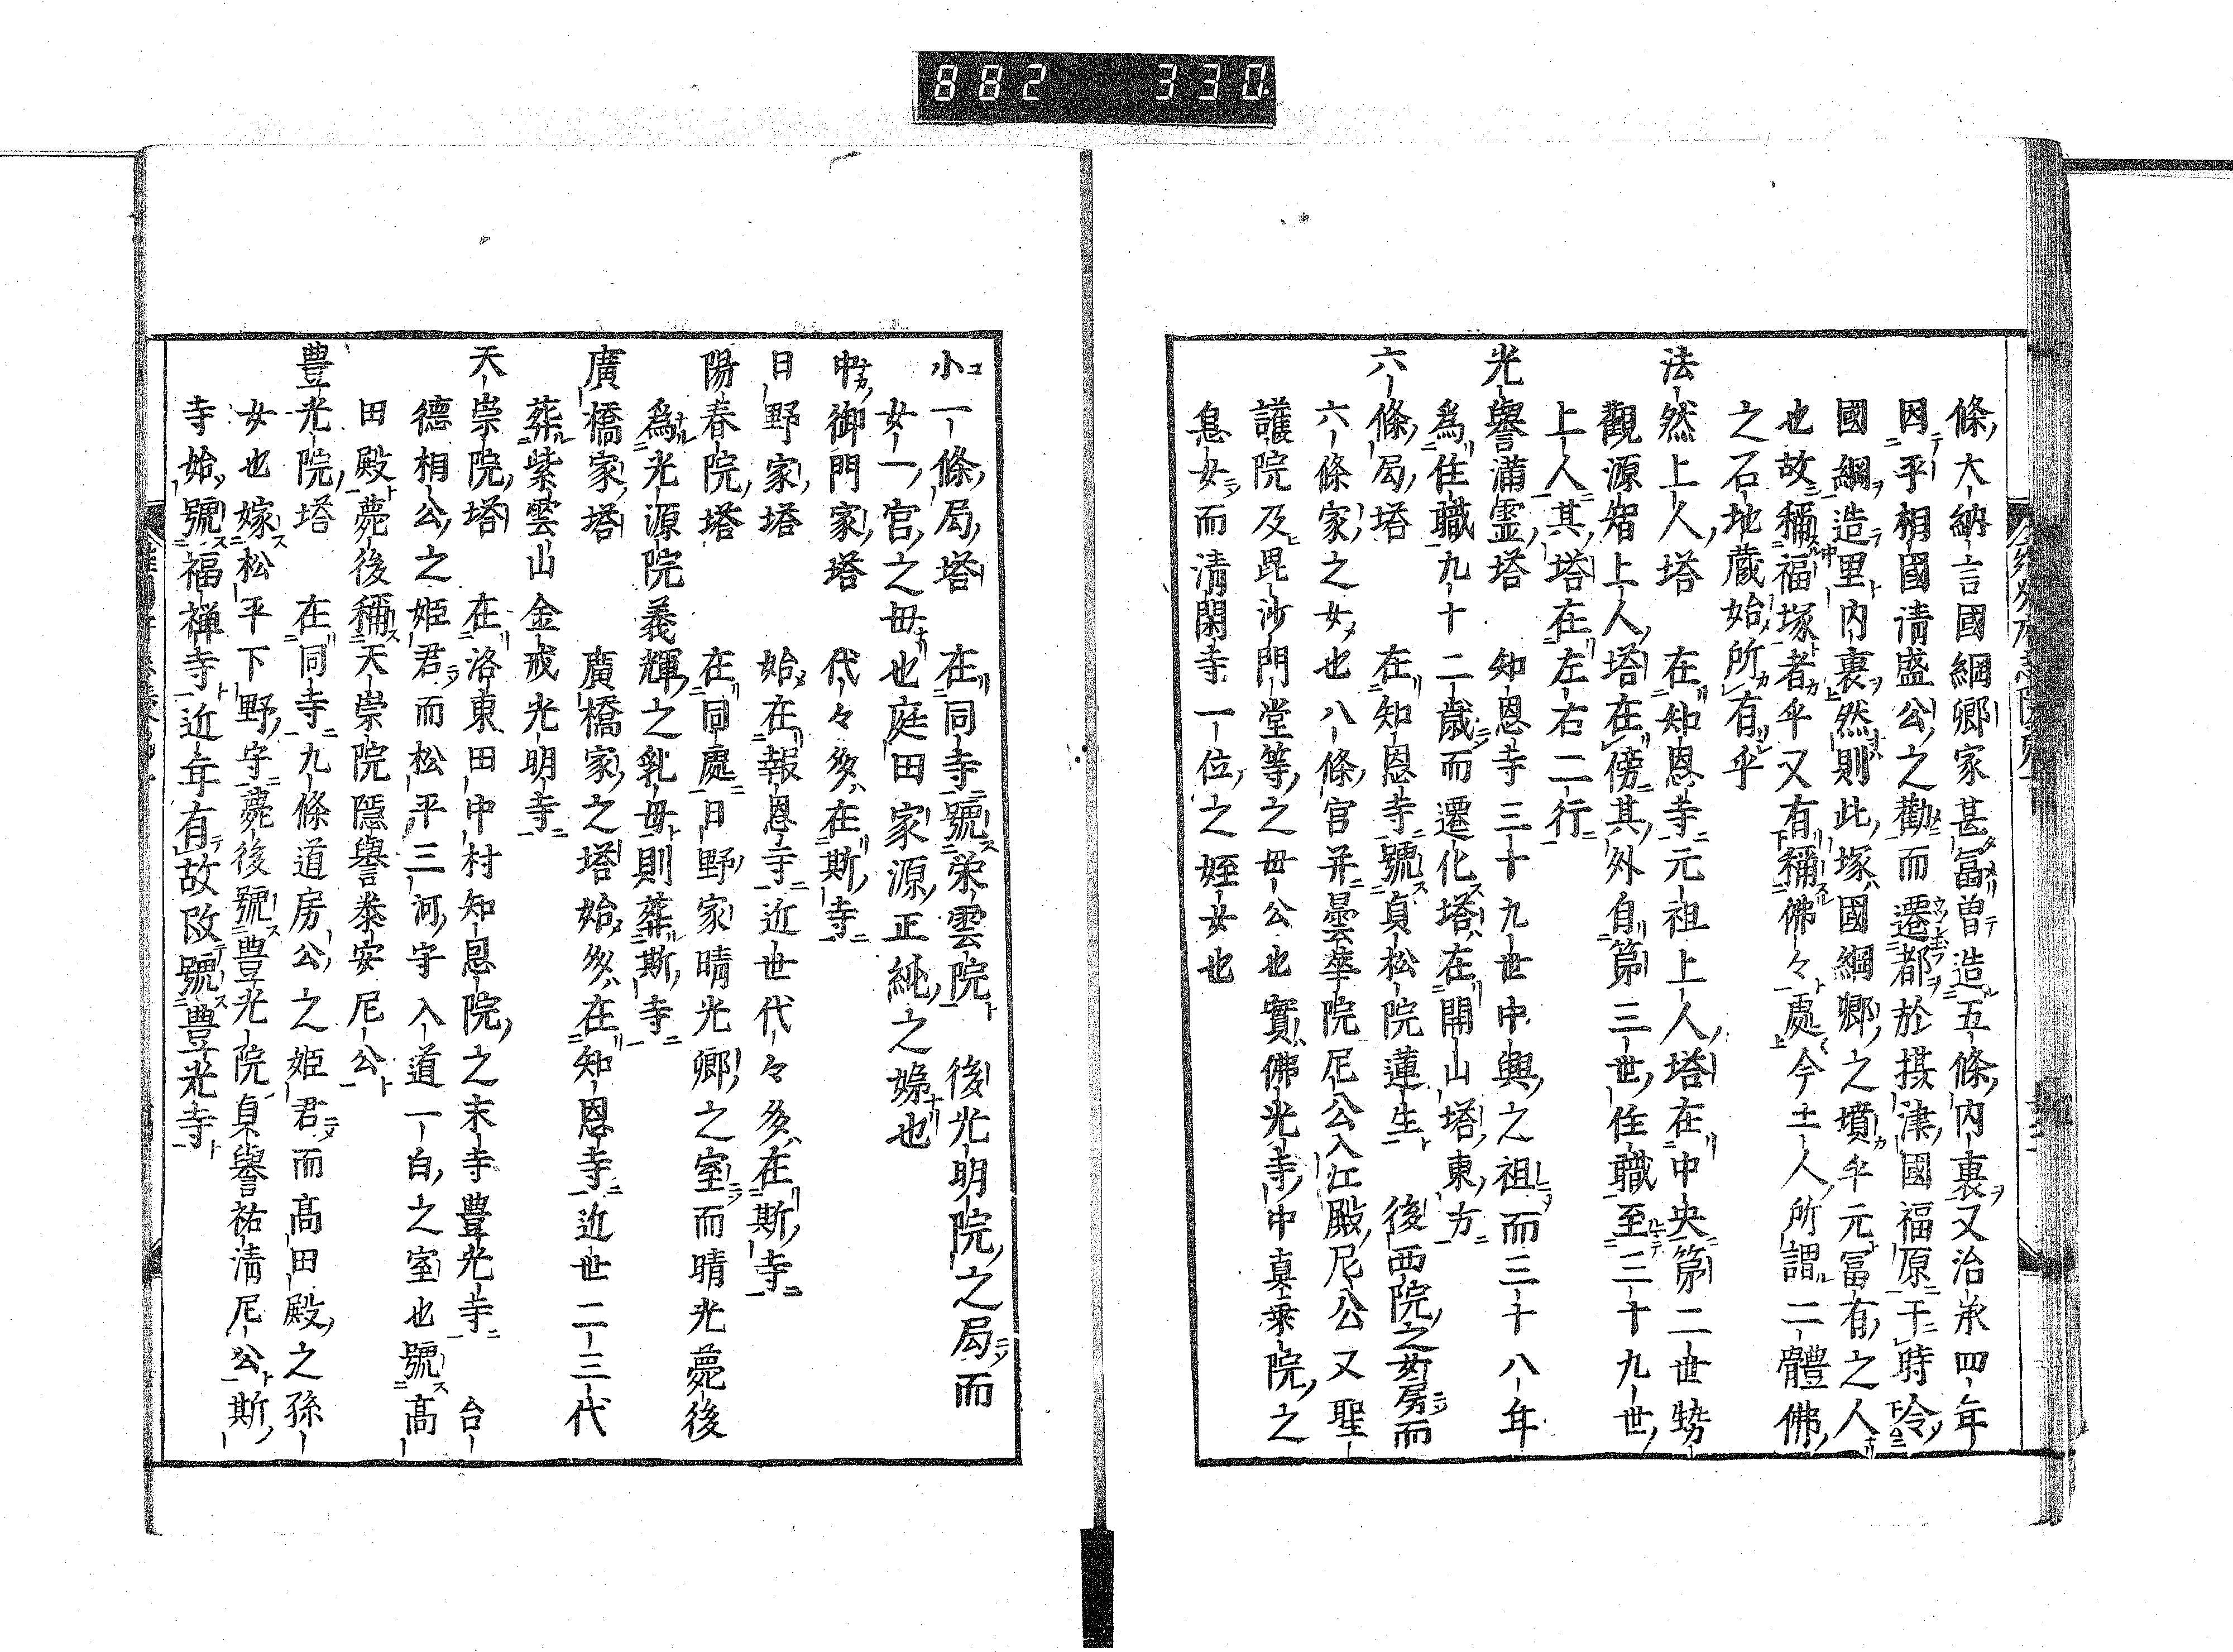 882 330
條大納言國綱卿家甚冨曽造五條内裏又治承四年
因平相國清盛公之勸而遷都於摂津國福原于時令
國綱造里内裏然則此塚國綱卿之墳乎元冨有之人
也故稱福塚者乎又有稱佛々處今土人所謂二體佛
之石地蔵始所有乎
法然上人塔 在知恩寺元祖上人塔在中央第二世勢
觀源智上人塔在傍其外自第三世住職至三十九世
上人其塔在左右二行
光譽滿霊塔 知恩寺三十九世中興之祖而三十八年
為住職九十二歳而遷化塔在開山塔東方
六條局塔 在知恩寺號貞松院蓮生 後西院之女房而
六條家之女也八條宮并曇華院尼公入江殿尼公又聖
護院及毘沙門堂等之母公也實佛光寺中真乗院之
息女而清閑寺一位之姪女也
小一條局塔 在同寺號栄雲院 後光明院之局而
女一宮之母也庭田家源正純之娣也
中御門家塔 代々多在斯寺
日野家塔 始在報恩寺近世代々多在斯寺
陽春院塔 在同處日野家晴光卿之室而晴光薨後
為光源院義輝之乳母則葬斯寺
廣橋家塔 廣橋家之塔始多在知恩寺近世二三代
葬紫雲山金戒光明寺
天崇院塔 在洛東田中村知恩院之末寺豊光寺 台
德相公之姫君而松平三河守入道一白之室也號高
田殿薨後稱天崇院隠譽泰安尼公
豊光院塔 在同寺九條道房公之姫君而高田殿之孫
女也嫁松平下野守薨後號豊光院貞譽祐清尼公斯
寺始號福禅寺近年有故改號豊光寺